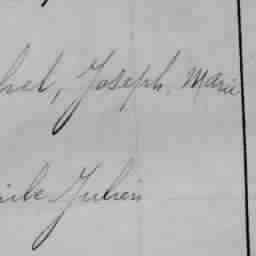 hel, Joseph, Marie
ile Julien